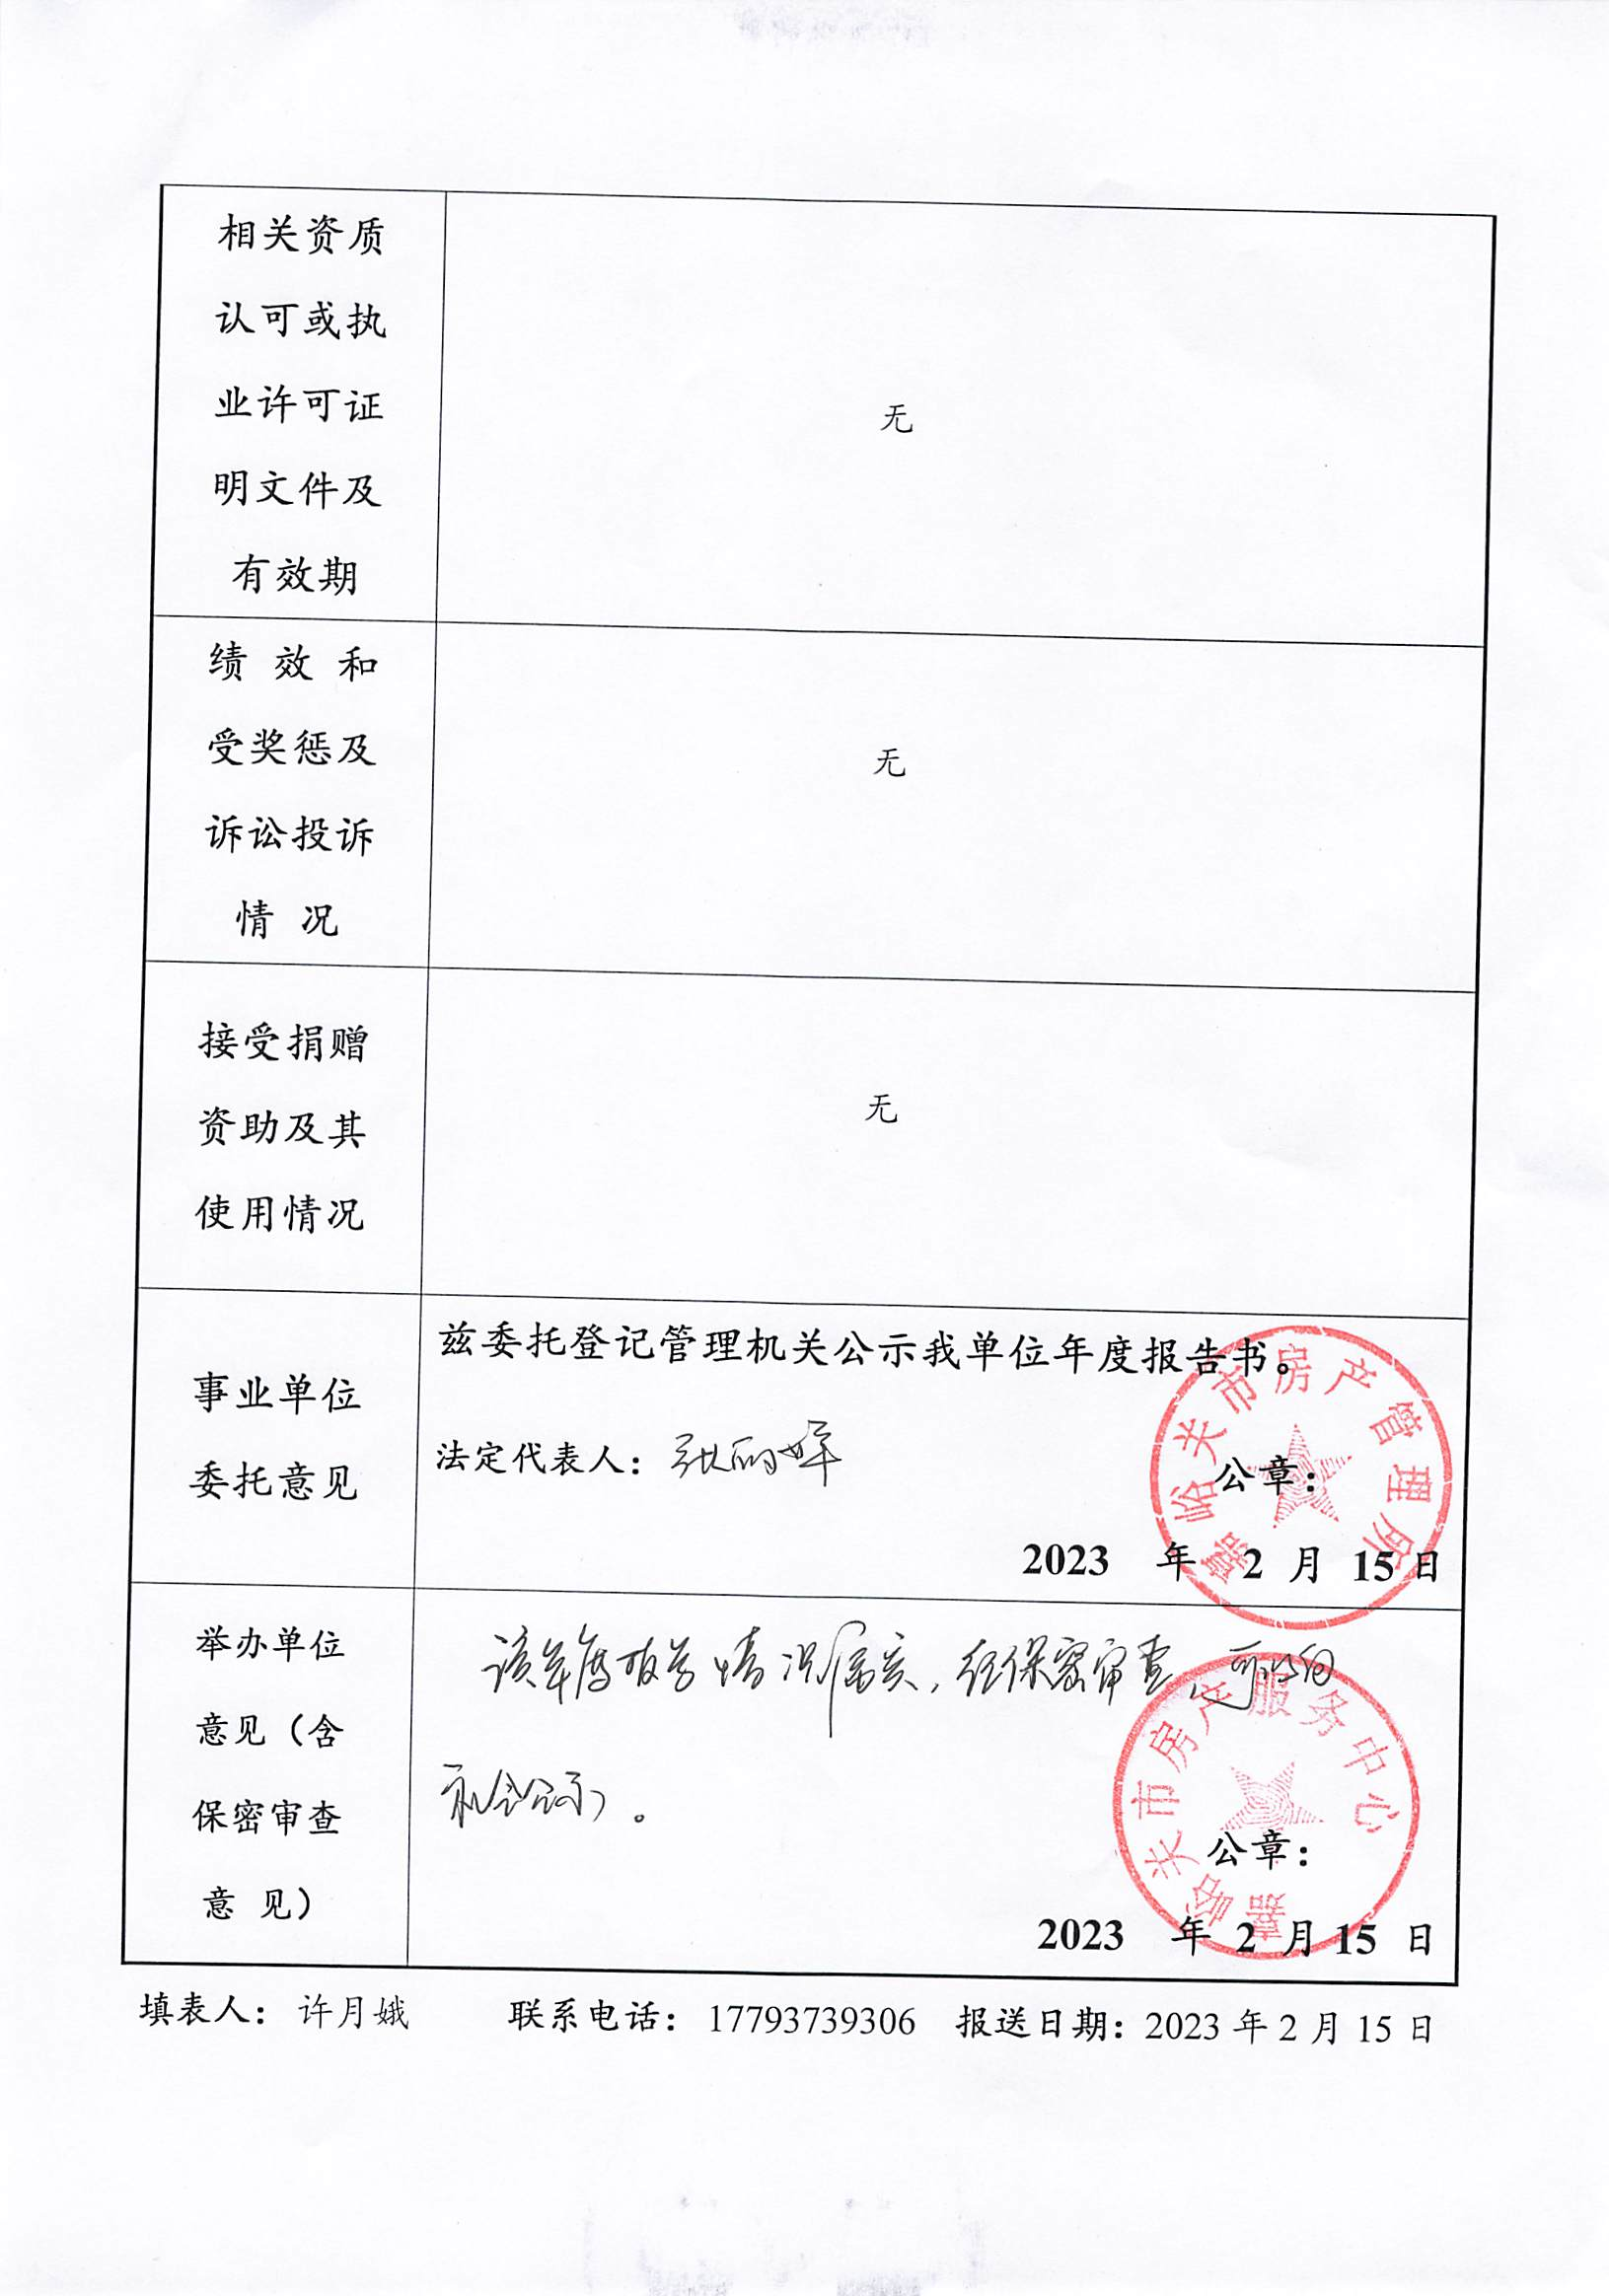 相关资质
认可或执
业许可证
明文件及
有效期
无
绩 效 和
受奖惩及
诉讼投诉
情 况
无
接受捐赠
资助及其
使用情况
无
事业单位
委托意见
兹委托登记管理机关公示我单位年度报告书。
法定代表人：
公章：
2023 年 2 月 15 日
嘉峪关市房产管理所
举办单位
意见（含
保密审查
意 见）
该年度报告情况属实，经保密审查，可以向
社会公示。
公章：
2023 年 2 月 15 日
嘉峪关市房产服务中心
填表人： 许月娥 联系电话： 17793739306 报送日期：2023 年 2 月 15 日